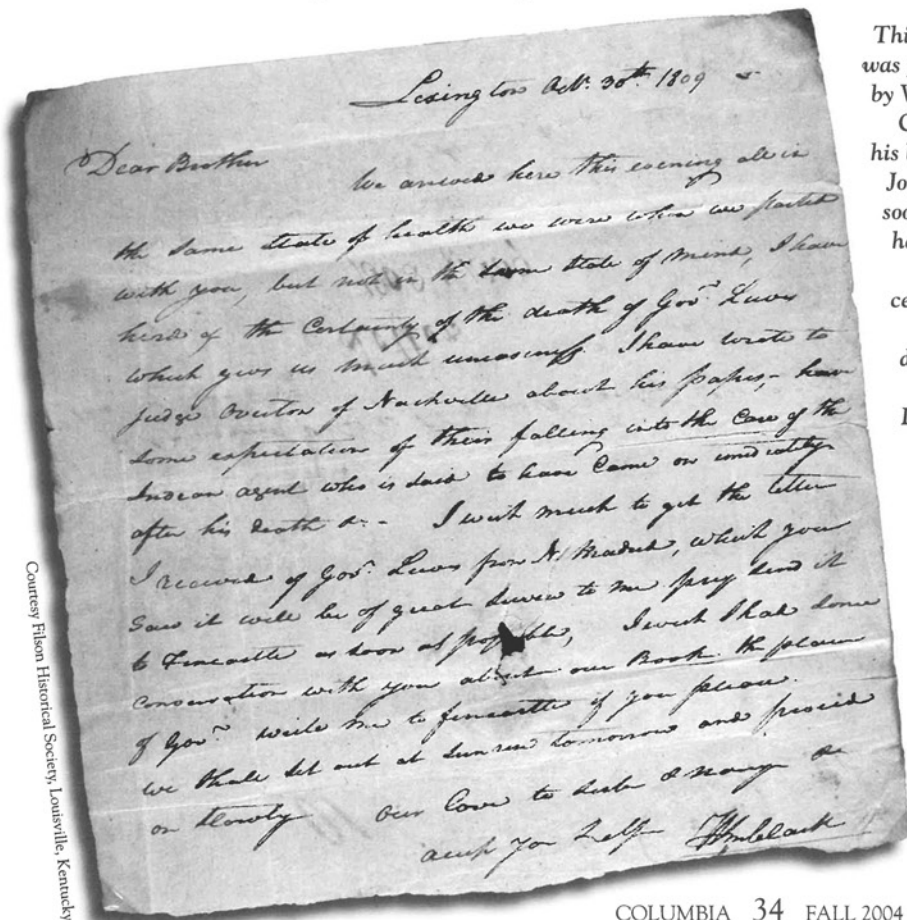 Lexington Octr. 30th. 1809
Dear Brother
We arived here this evening all in
the same state of health we were when we parted
with you, but not in the same state of mind, I have
herd of the Certainty of the death of Govr. Lewis
which givs us much uneasiness. I have wrote to
judge Overton of Nashville about his papers,- have
some expectation of their falling into the Care of the
Indian agent who is said to have Came on imediately
after his death &c.- I wish much to get the letter
I receved of Govr. Lewis from N. Madrid, which you
Saw it will be of great Service to me prey send it
to Fincastle as soon as possible, I wish I had some
conversation with you about our Book. the plans
of Govr. write me to fincastle if you please.
we shall set out at Sunrise tomorrow and proceed
on slowly Our Love to &
accept your self Wm Clark
Thi
was
by W
C
his
Jo
soo
h
ce
d
Courtesy Filson Historical Society, Louisville, Kentucky
COLUMBIA 34 FALL 2004